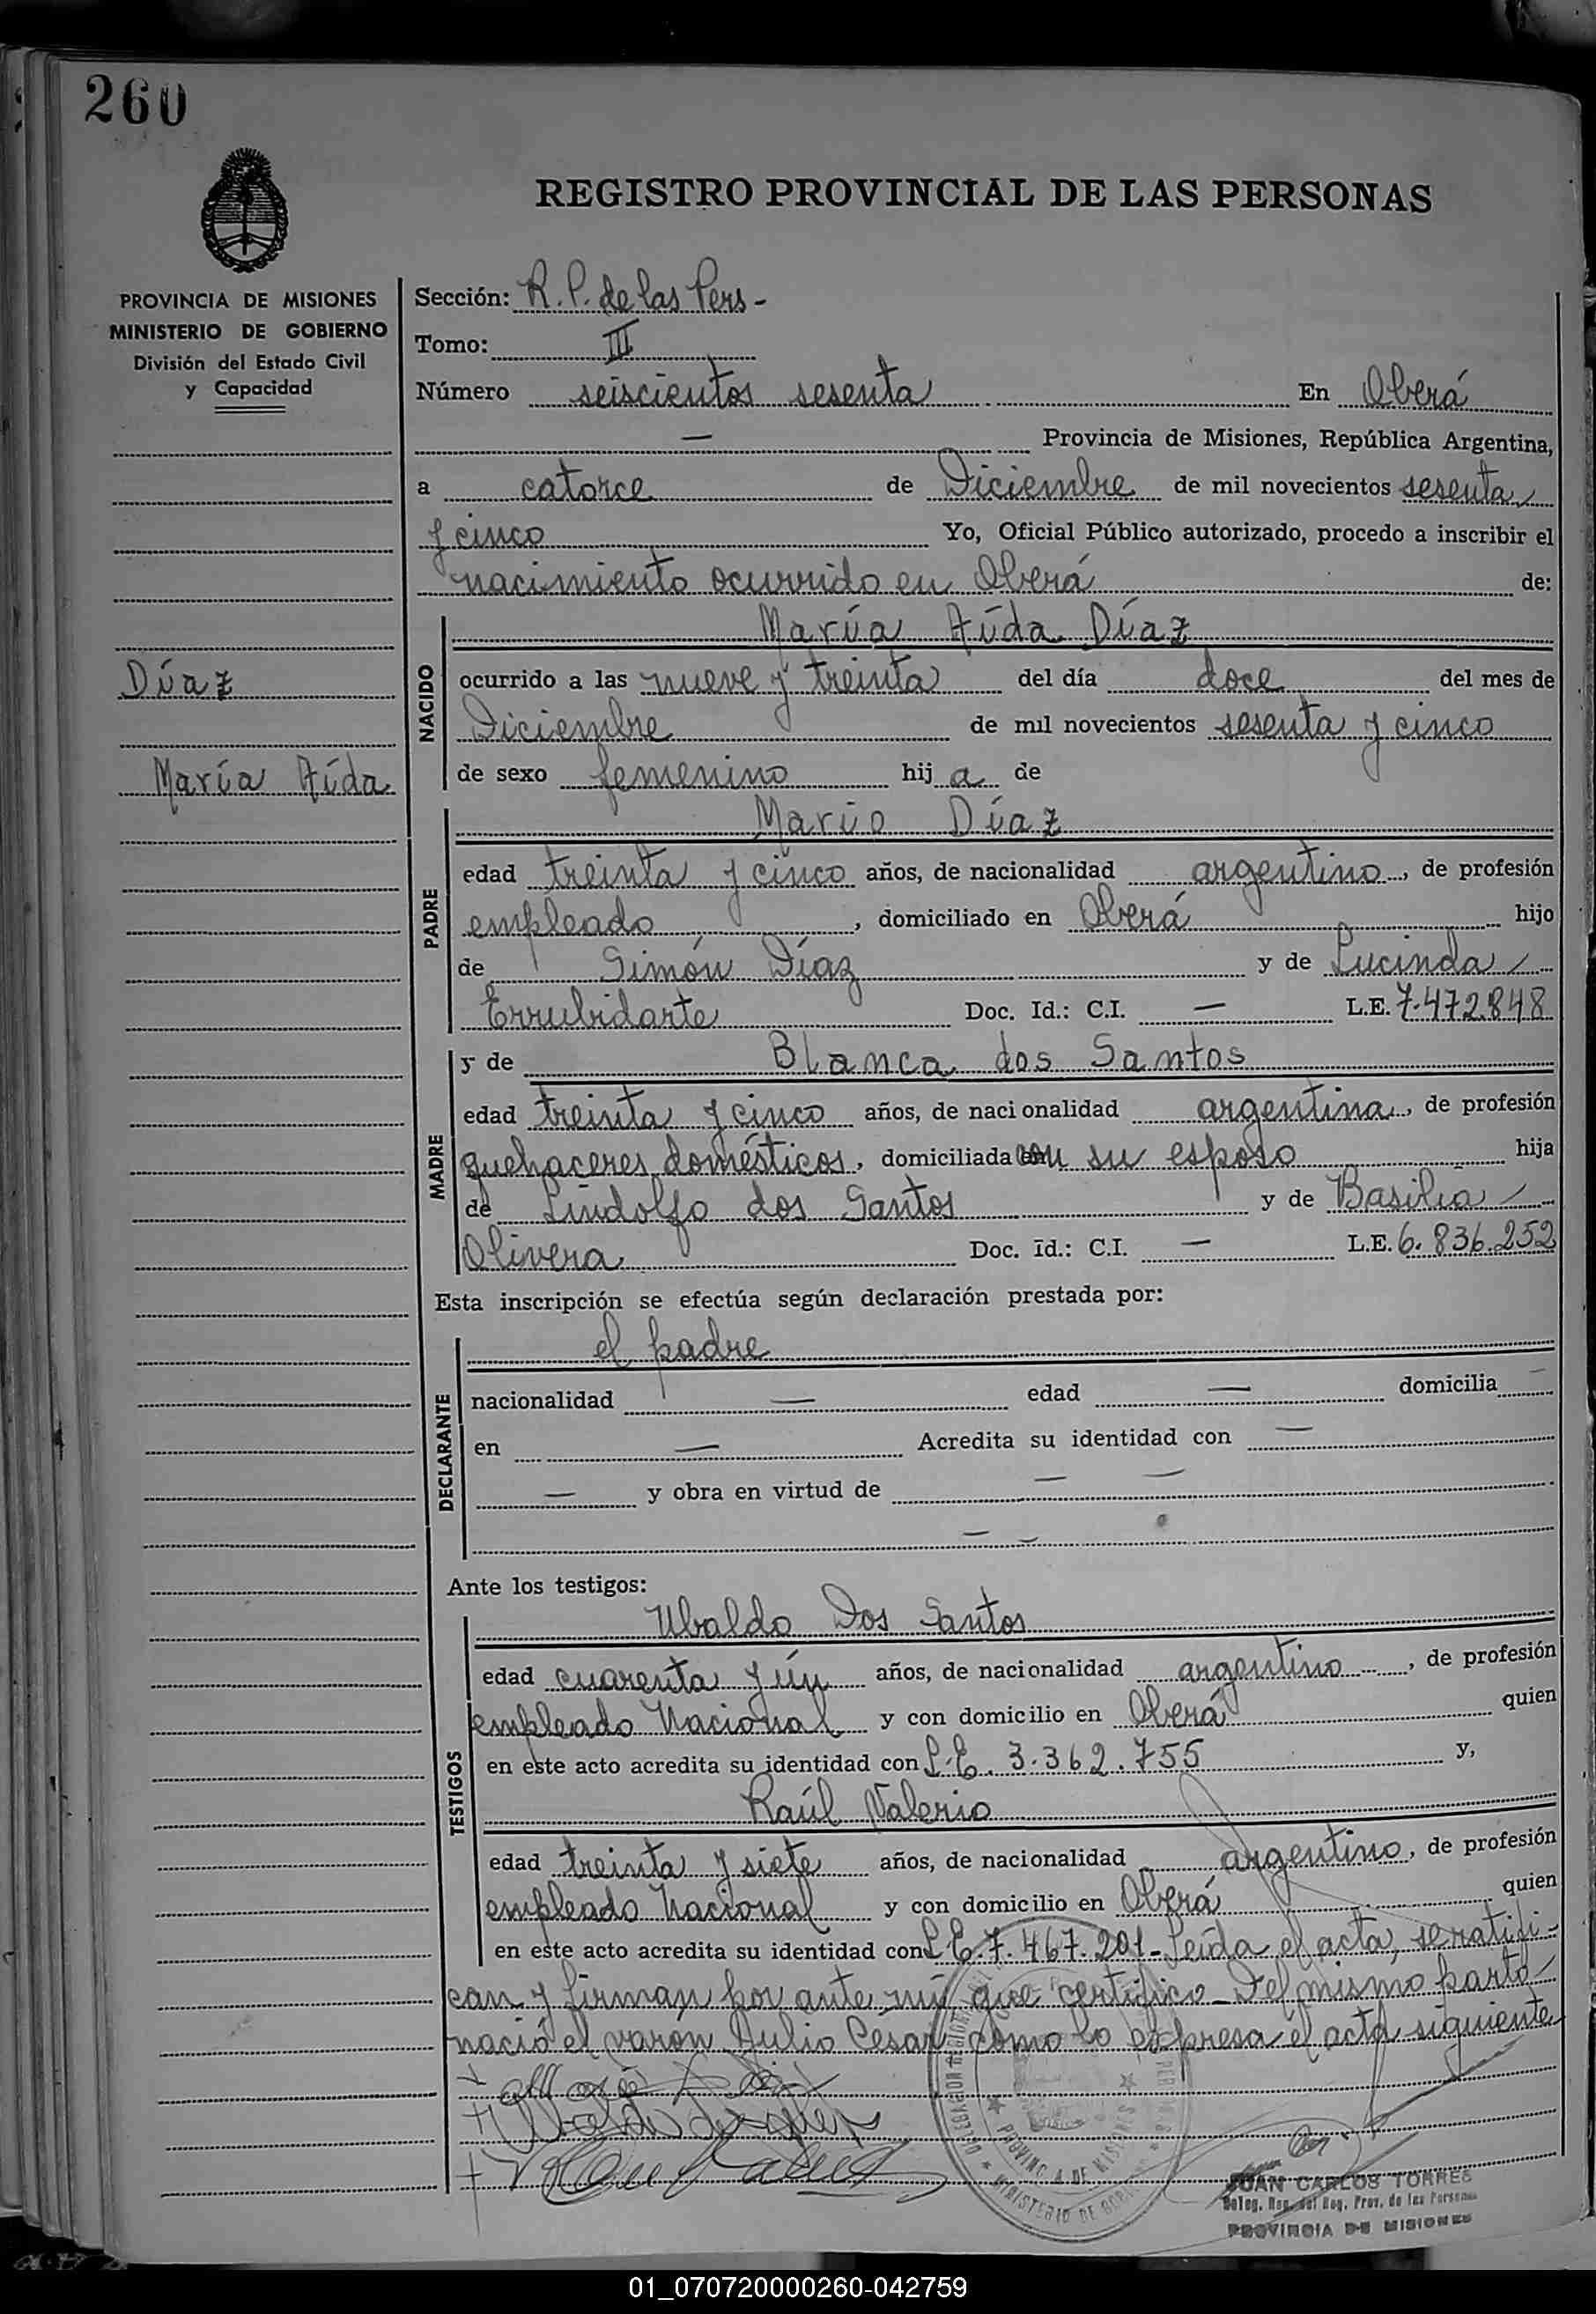 260
REGISTRO PROVINCIAL DE LAS PERSONAS
PROVINCIA DE MISIONES
MINISTERIO DE GOBIERNO
División del Estado Civil
y Capacidad
Díaz
María Aída
Sección: R. P. de las Pers -
Tomo: III
Número seiscientos sesenta En Oberá
— Provincia de Misiones, República Argentina,
a catorce de Diciembre de mil novecientos sesenta
y cinco Yo, Oficial Público autorizado, procedo a inscribir el
nacimiento ocurrido en Oberá de:
NACIDO
María Aída Díaz
ocurrido a las nueve y treinta del día doce del mes de
Diciembre de mil novecientos sesenta y cinco
de sexo femenino hij a de
PADRE
Mario Díaz
edad treinta y cinco años, de nacionalidad argentino, de profesión
empleado, domiciliado en Oberá hijo
de Simón Díaz y de Lucinda
Errubidarte Doc. Id.: C.I. — L.E. 7.472.848
MADRE
y de Blanca dos Santos
edad treinta y cinco años, de nacionalidad argentina, de profesión
quehaceres domésticos, domiciliada con su esposo hija
de Lindolfo dos Santos y de Basilia
Olivera Doc. Id.: C.I. — L.E. 6.836.252
Esta inscripción se efectúa según declaración prestada por:
DECLARANTE
el padre
nacionalidad — edad — domicilia —
en — Acredita su identidad con —
— y obra en virtud de — —
— —
Ante los testigos:
TESTIGOS
Ubaldo Dos Santos
edad cuarenta y ún años, de nacionalidad argentino, de profesión
empleado Nacional y con domicilio en Oberá quien
en este acto acredita su identidad con L.E. 3.362.755 y,
Raúl Valerio
edad treinta y siete años, de nacionalidad argentino, de profesión
empleado Nacional y con domicilio en Oberá quien
en este acto acredita su identidad con L.E. 7.467.201 - Leída el acta, se ratifi-
can y firman por ante mí que certifico - Del mismo parto
nació el varón Julio César como lo expresa el acta siguiente
JUAN CARLOS TORRES
Deleg. Reg. del Reg. Prov. de las Personas
PROVINCIA DE MISIONES
PROVINCIA DE MISIONES
MINISTERIO DE GOBIERNO
01_070720000260-042759